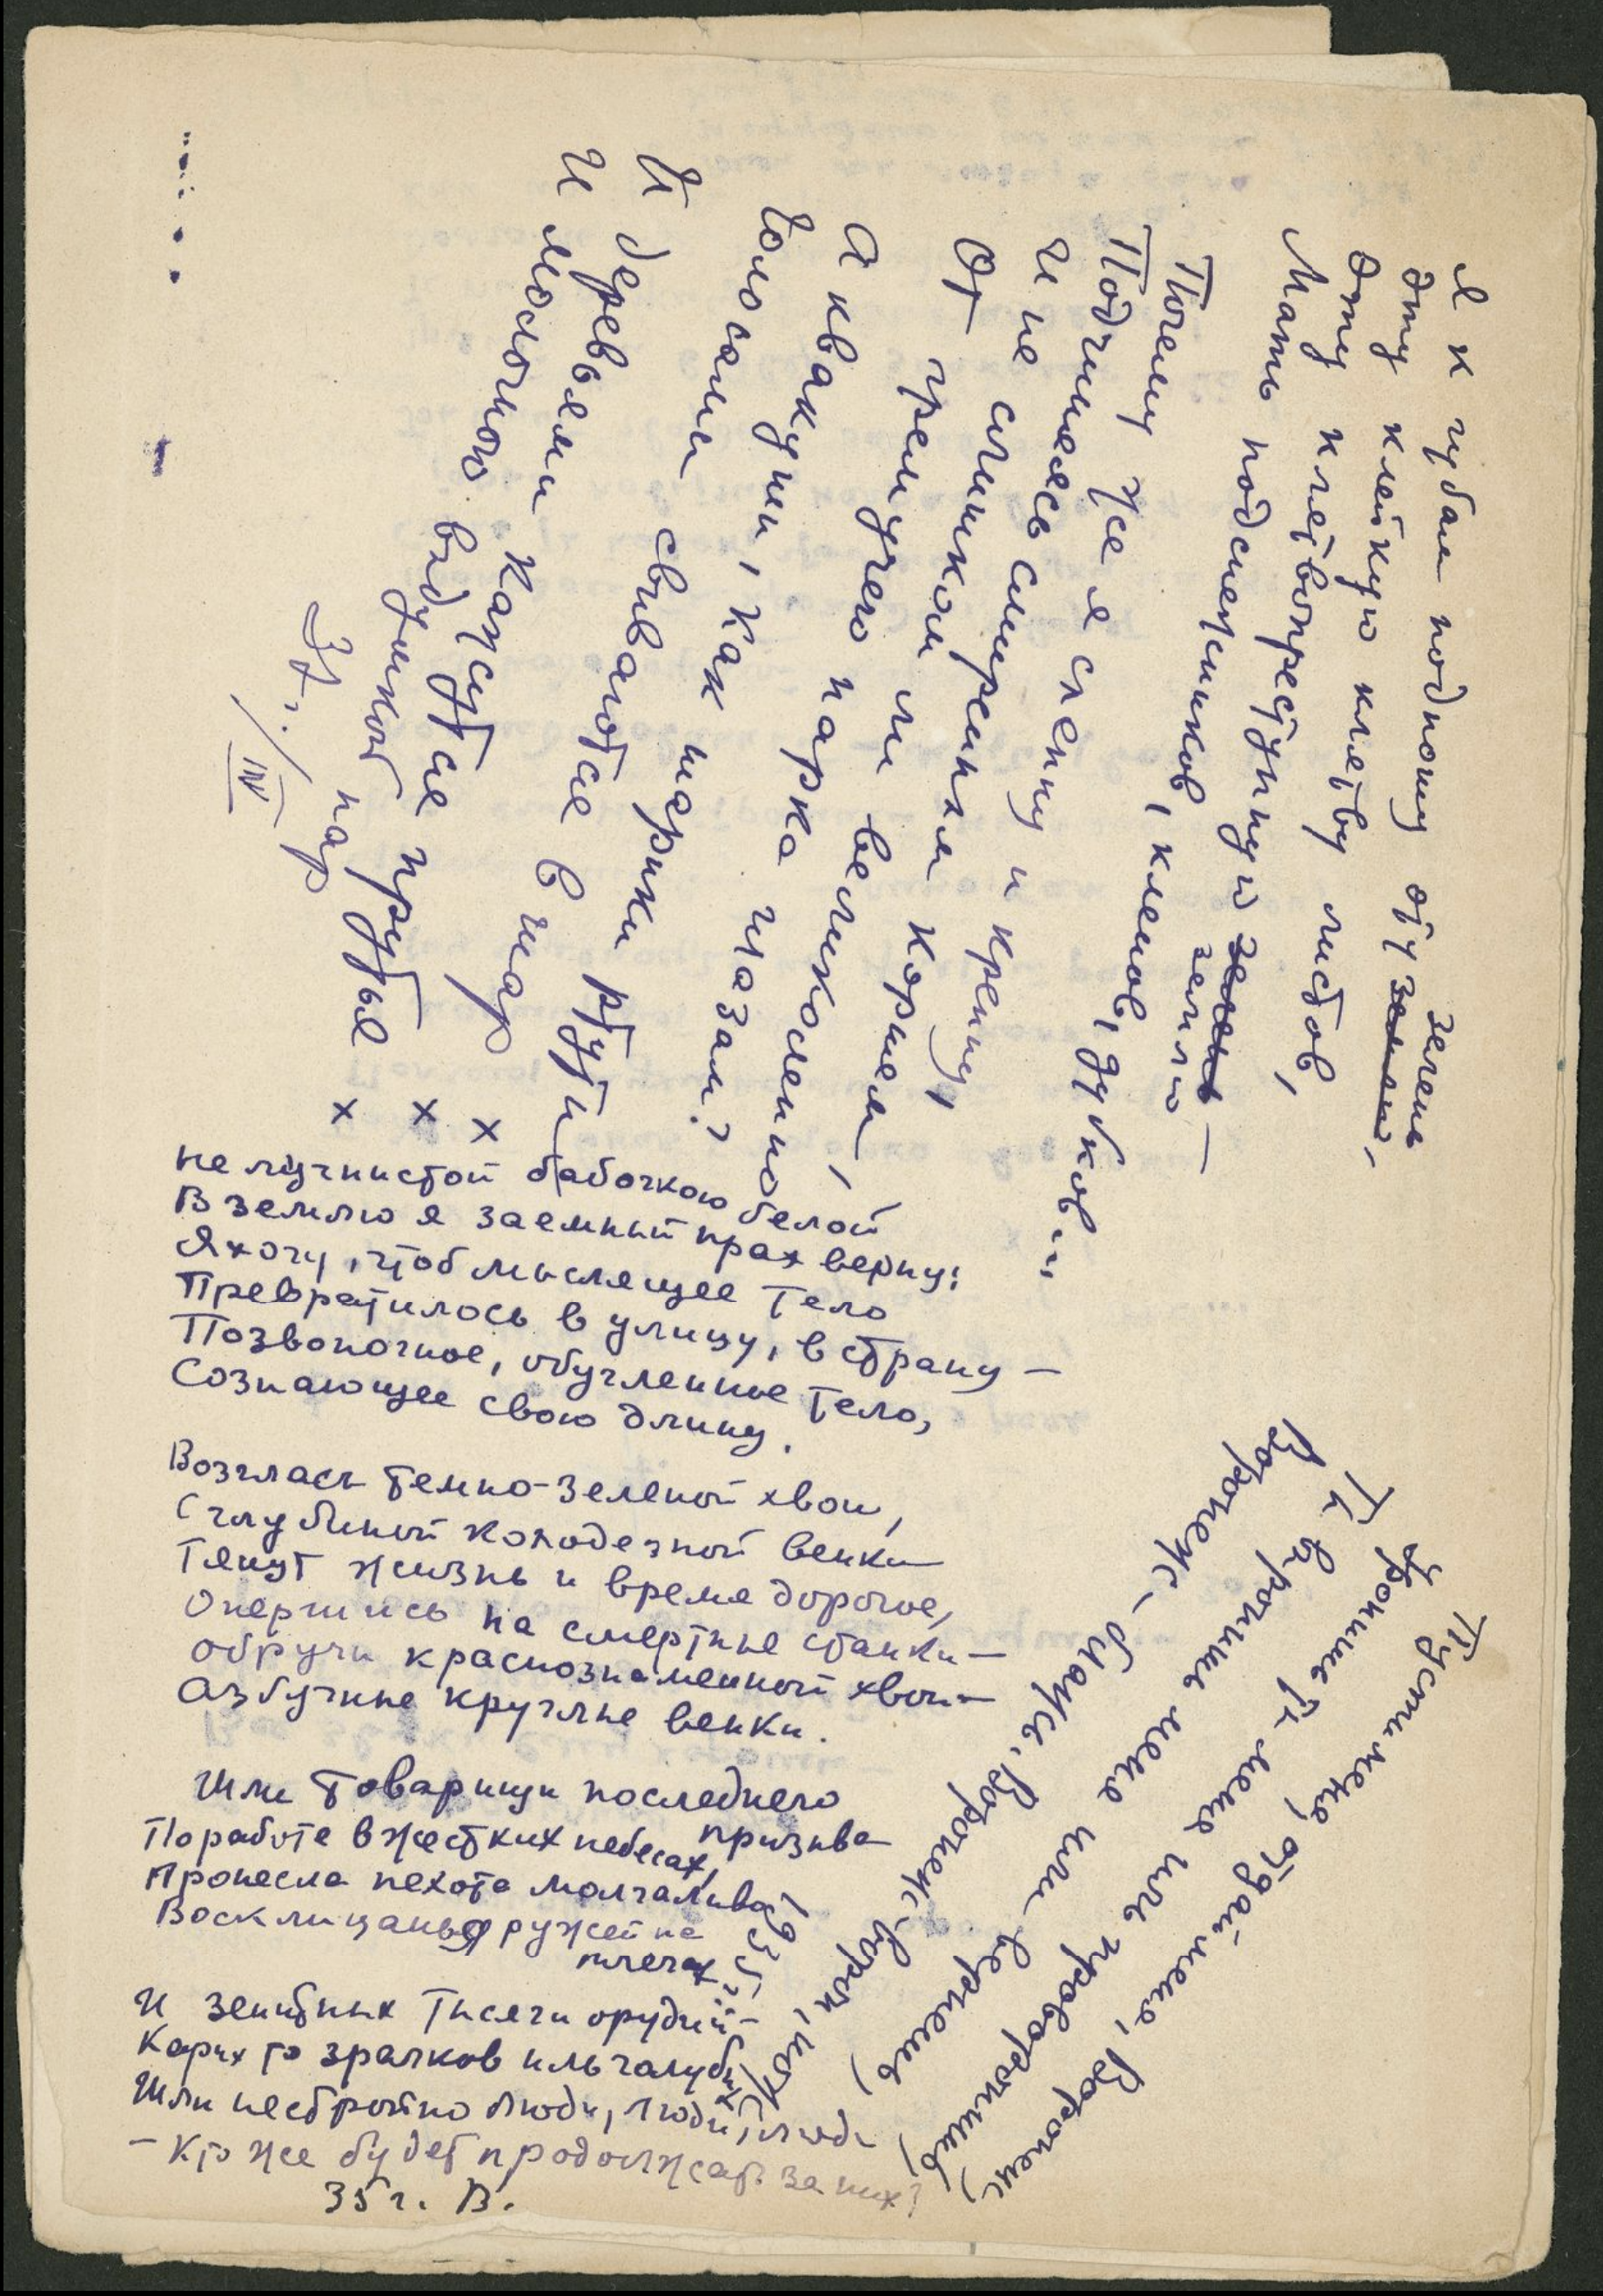 Я к губам подношу эту зелень
~~зелень~~,
Эту клейкую клятву листов,
Эту клятвопреступную ~~зелень~~
землю —
Мать подснежников, кленов, дубков.
Почему же я слепну и крепну,
Подчиняясь смиренным корням,
И не слишком ли великолепно
От гремучего парка глазам?
А квакуши, как шарики ртути,
Голосами свиваются в шар
И деревьями кажутся прутья
И молочною выдумкой пар
37 г. / IV
х х х
Не мучнистой бабочкою белой
В землю я заемный прах верну:
Я хочу, чтоб мыслящее тело
Превратилось в улицу, в страну —
Позвоночное, обугленное тело,
Сознающее свою длину.
Возгласы темно-зеленой хвои,
С глубиной колодезной венки
Тянут жизнь и время дорогое,
Опершись на смертные станки —
Обручи краснознаменной хвои —
Азбучные круглые венки.
Шли товарищи последнего
призыва
По работе в жестких небесах,
Пронесла пехота молчаливо
Восклицанья ружей на
плечах.
И зенитных тысячи орудий —
Карих то зрачков иль голубых
Шли нестройно люди, люди, люди
— Кто же будет продолжать за них?
35 г. В.
Пусти меня, отдай меня, Воронеж,
Уронишь ты меня иль проворонишь,
Ты выронишь меня или вернешь,
Воронеж — блажь, Воронеж — ворон, нож
1935 г.